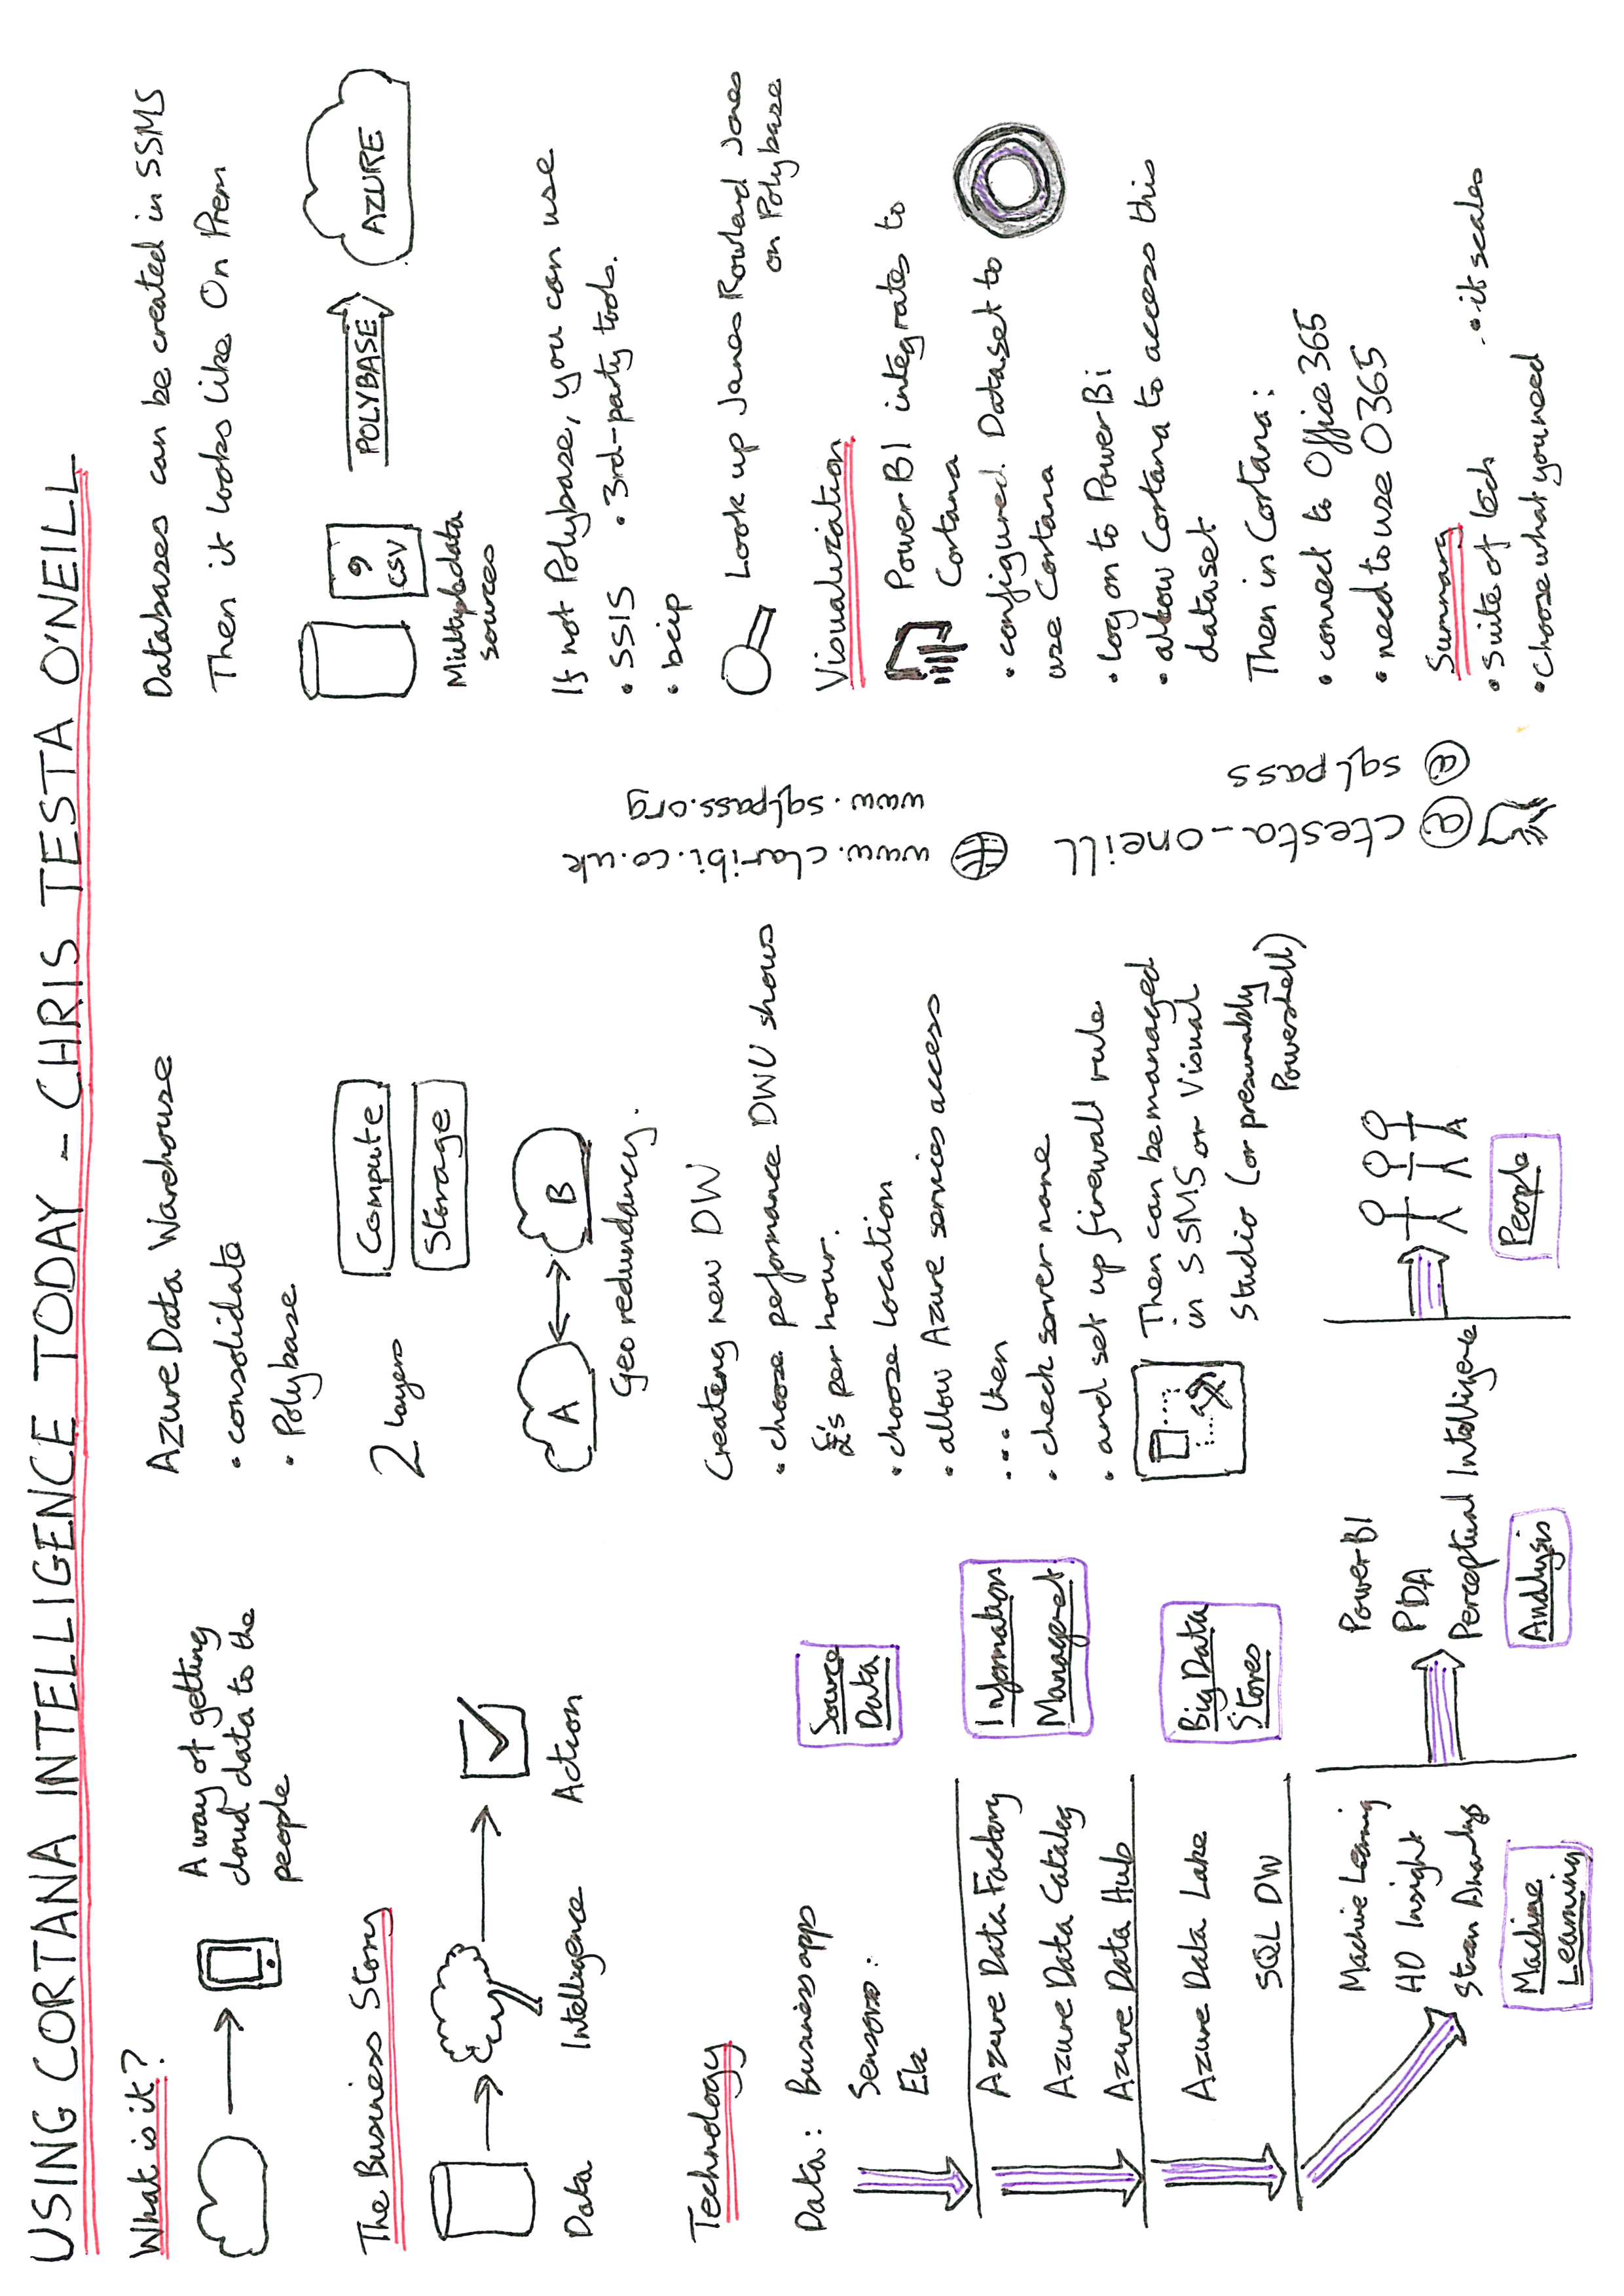 USING CORTANA INTELLIGENCE TODAY - CHRIS TESTA O'NEILL
What is it?
A way of getting
cloud data to the
people
The Business Story
Data
Intelligence
Action
Technology
Data: Business apps
Sensors:
Etc
Source
Data
Azure Data Factory
Azure Data Catalog
Azure Data Hub
Information
Managemet
Azure Data Lake
SQL DW
Big Data
Stores
Machine Learning
HD Insight
Stream Analytics
Machine
Learning
Power BI
PDA
Perceptual Intelligence
Analysis
People
Azure Data Warehouse
• consolidate
• Polybase
2 layers
Compute
Storage
A
B
Geo redundancy.
Creating new DW
• choose performance DWU shows
£'s per hour.
• choose location
• allow Azure services access
... then
• check server name
• and set up firewall rule
Then can be managed
in SSMS or Visual
Studio (or presumably
Powershell)
www.claribi.co.uk
www.sqlpass.org
@ctesta-oneill
@sqlpass
Databases can be created in SSMS
Then it looks like On Prem
CSV
Multiple data
sources
POLYBASE
AZURE
If not Polybase, you can use
• SSIS • 3rd-party tools.
• bcip
Look up James Rowland Jones
on Polybase
Visualization
Power BI integrates to
Cortana
• configured. Dataset to
use Cortana
• Log on to Power Bi
• allow Cortana to access this
dataset
Then in Cortana:
• connect to Office 365
• need to use O365
Summary
• Suite of tech • it scales
• Choose what you need